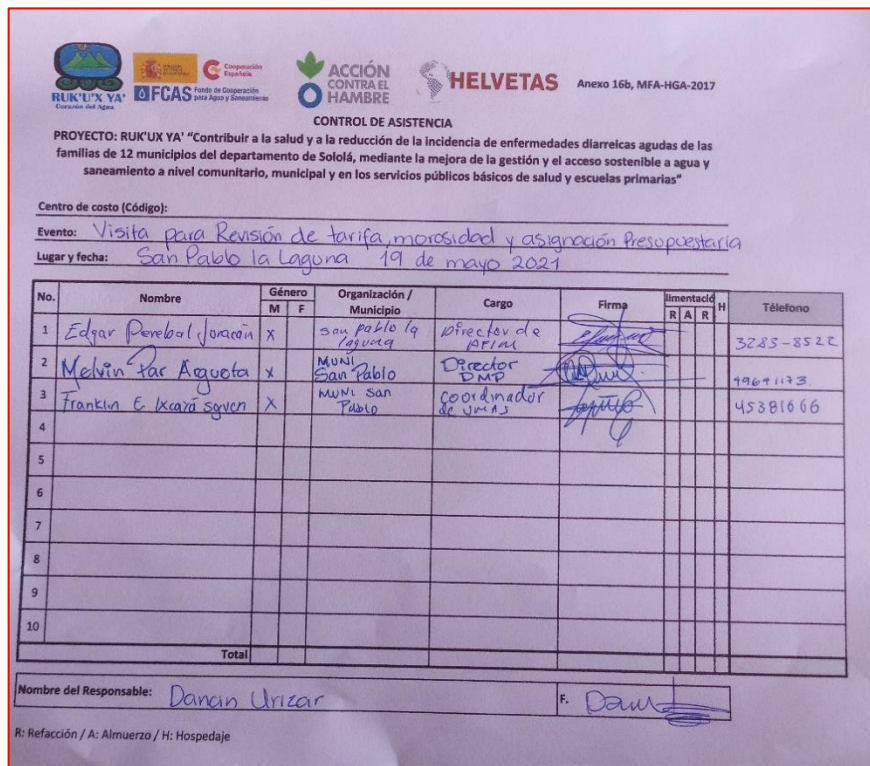 RUK'U'X YA'
Corazón del Agua
Cooperación Española
FCAS Fondo de Cooperación para Agua y Saneamiento
ACCIÓN CONTRA EL HAMBRE
HELVETAS
Anexo 16b, MFA-HGA-2017
CONTROL DE ASISTENCIA
PROYECTO: RUK'UX YA' "Contribuir a la salud y a la reducción de la incidencia de enfermedades diarreicas agudas de las
familias de 12 municipios del departamento de Sololá, mediante la mejora de la gestión y el acceso sostenible a agua y
saneamiento a nivel comunitario, municipal y en los servicios públicos básicos de salud y escuelas primarias"
Centro de costo (Código):
Evento: Visita para Revisión de tarifa, morosidad y asignación Presupuestaria
Lugar y fecha: San Pablo la Laguna 19 de mayo 2021
No. Nombre Género M F Organización / Municipio Cargo Firma limentació R A R H Télefono
1 Edgar x san pablo la laguna Director de 3283-8522
2 Melvin Par Argueta x MUNI San Pablo Director DMP 49641173
3 Franklin E Ixcayá X MUNI San Pablo coordinador de UMAS 45381666
4
5
6
7
8
9
10
Total
Nombre del Responsable: Danan Urizar F.
R: Refacción / A: Almuerzo / H: Hospedaje